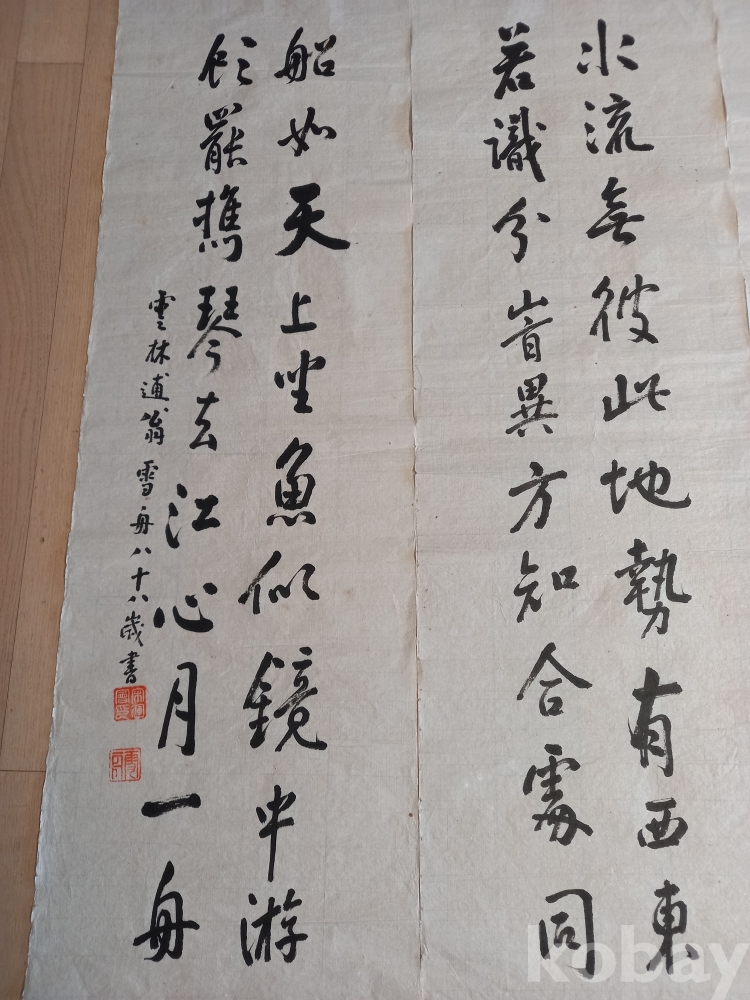 水流無彼此地勢有西東
若識分旹異方知合處同
船如天上坐魚似鏡中游
飮罷携琴去江心月一舟
雲林逋翁雪舟八十八歲書
kobay